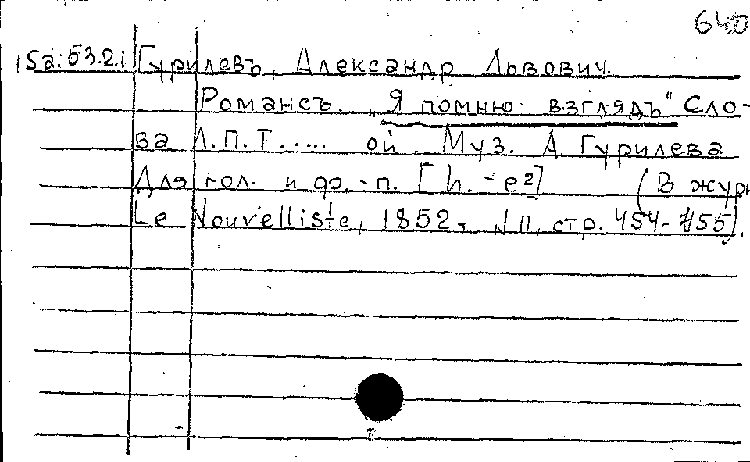 640
Sa: 53.2.1 Гурилевъ, Александр Львович.
Романсъ. „Я помню взглядъ" Сло-
ва Л.П.Т..... ой Муз. А Гурилева
Для гол. и фо.-п. [h. - e²] (В журн
Le Nouvelliste, 1852, N 11, стр. 454-455).